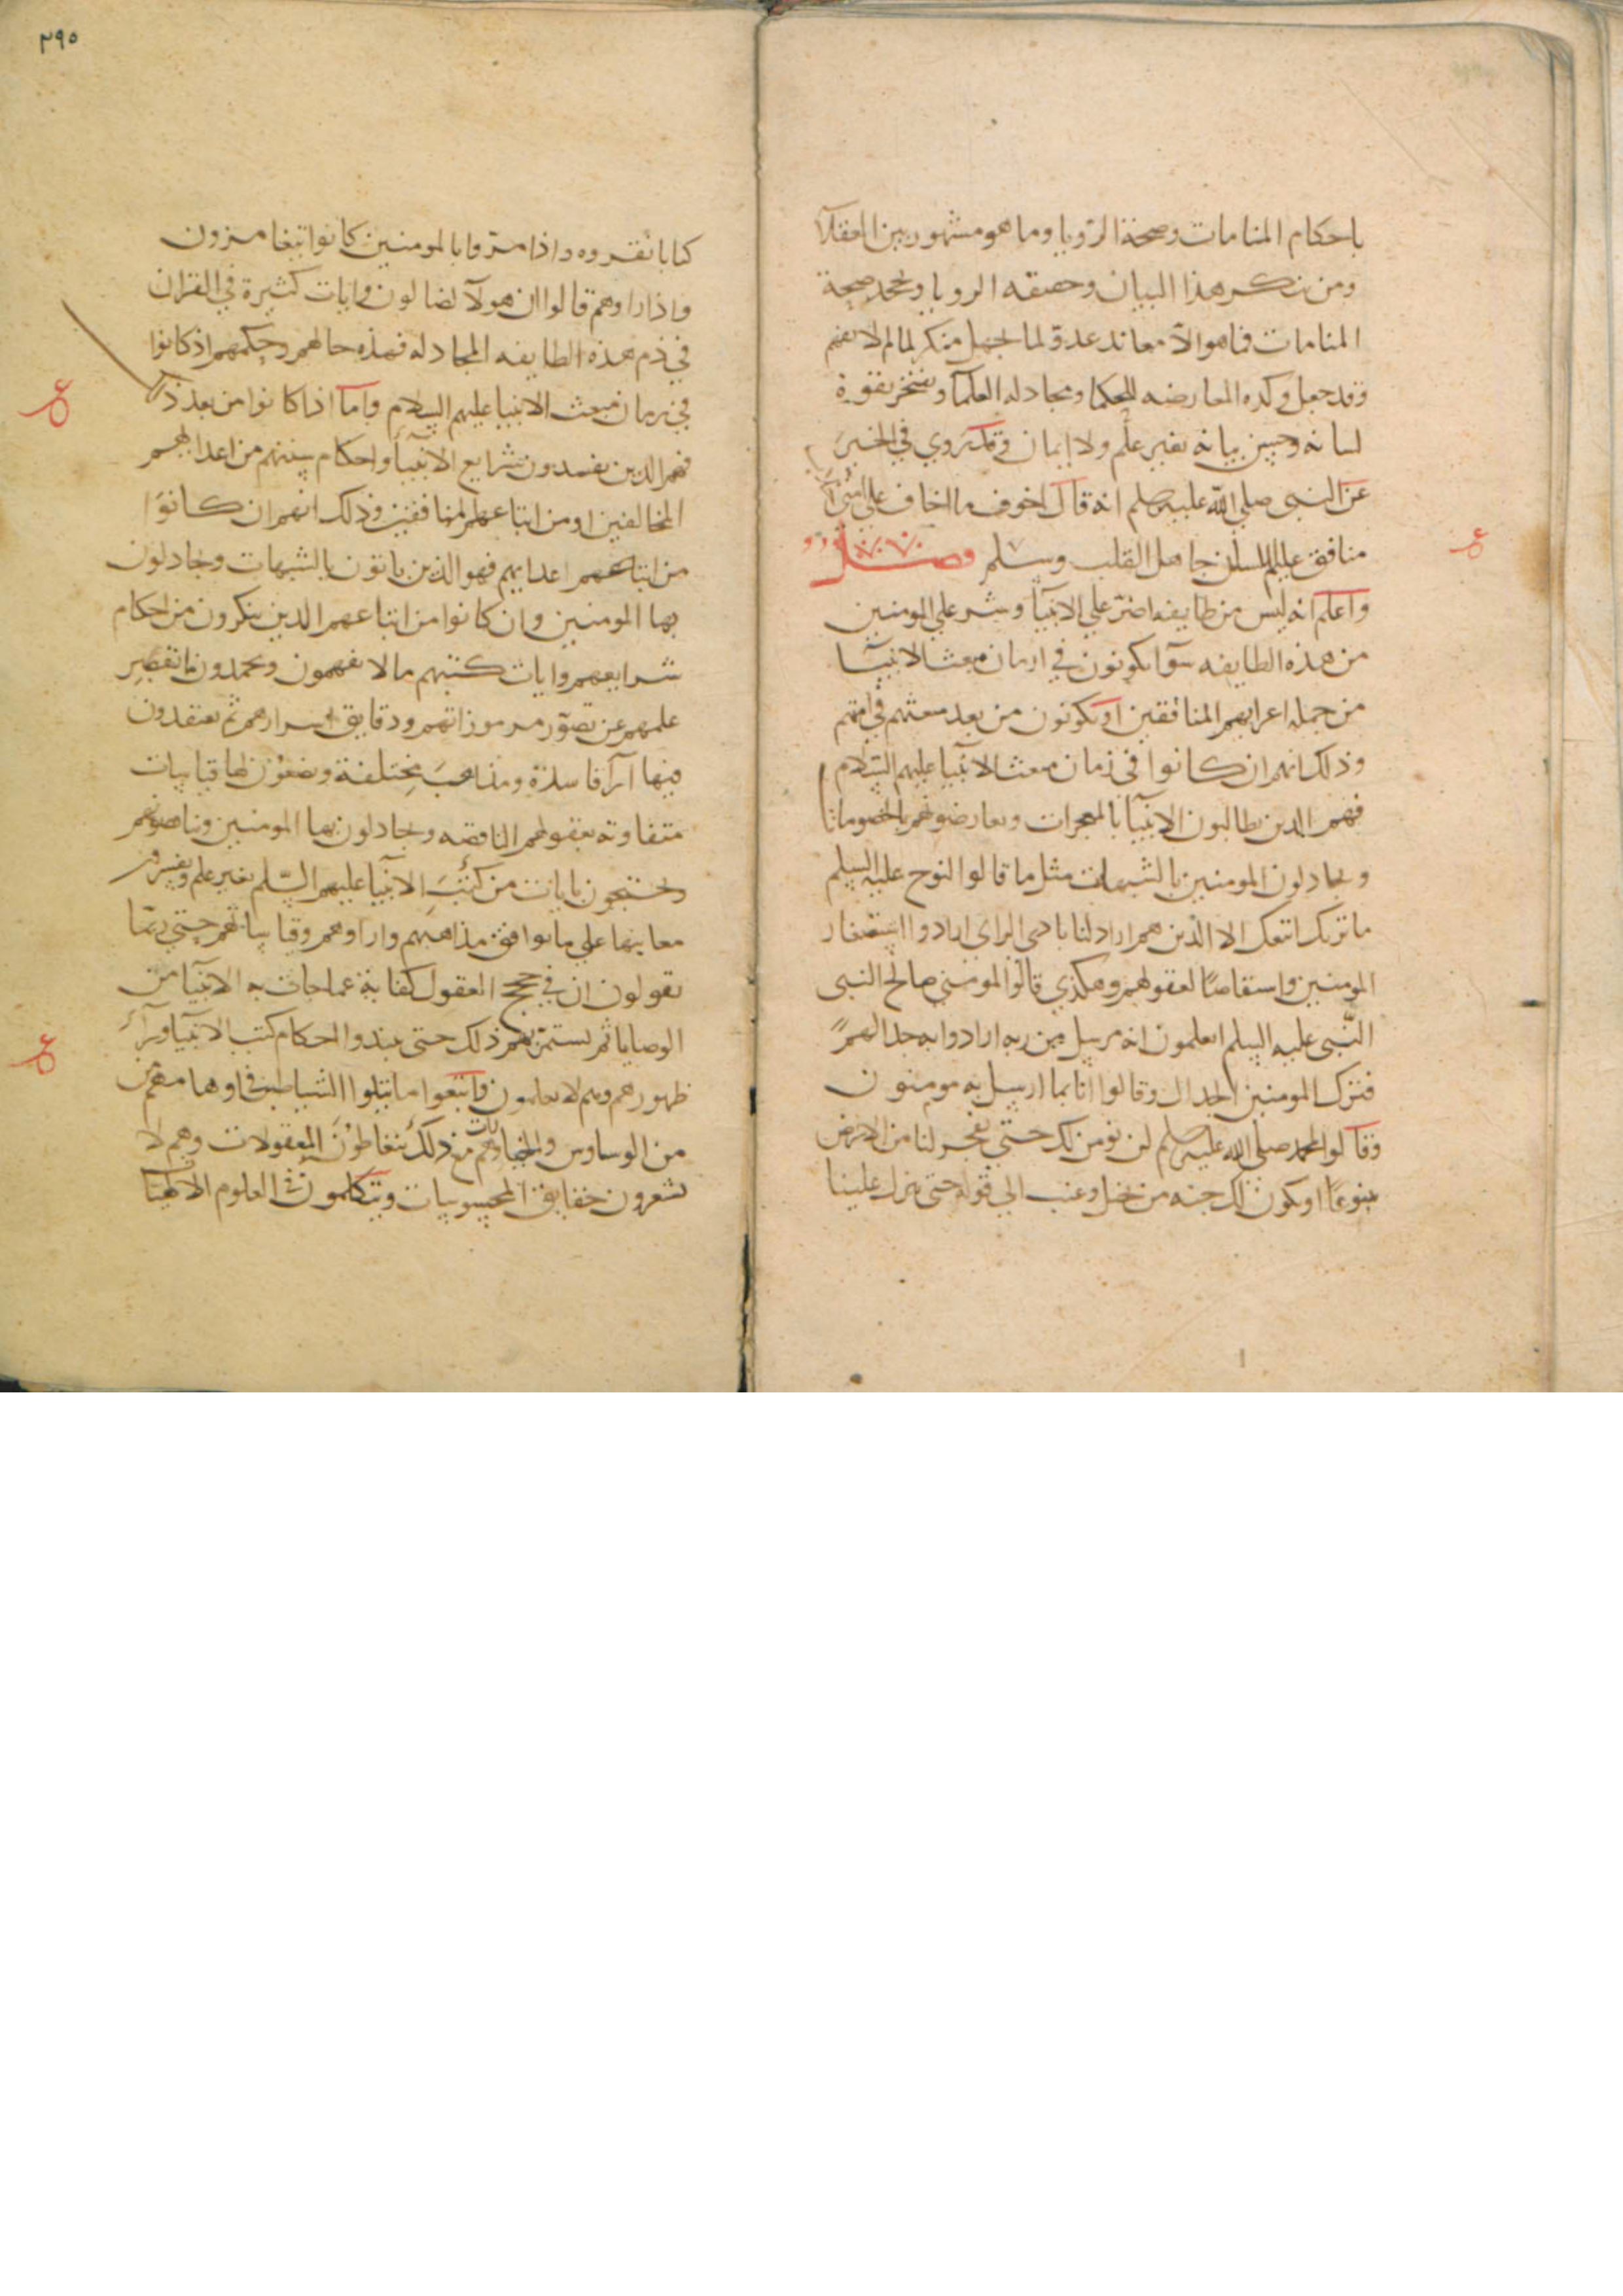 باحكام المنامات وصحة الرويا وما هو مشهور بين العقلآ
ومن ينكر هذا البيان وحقيقه الرويا ويجحد صحة
المنامات فما هو الا معاند عدو لما جهل منكر لما لا يفهم
وقد جعل وكده المعارضه للحكما ومجادله العلمآ ويفتخر بقوة
لسانه وحسن بيانه بغير علم ولا ايمان وقد روي في الخبر
عن النبى صلى الله عليه وسلم انه قال اخوف ما اخاف على امتى
منافق عليم اللسان جاهل القلب وسلم فصل
واعلم انه ليس من طايفه اضر علي الانبيآ وشر علي المومنين
من هذه الطايفه سوآ يكونون في ازمان مبعث الانبيآ
من جمله اعدايهم المنافقين او يكونون من بعد مبعثهم في امتهم
وذلك انهم ان كانوا في زمان مبعث الانبيآ عليهم السلام
فهم الدين يطالبون الانبيآ بالمعجزات ويعارضونهم بالخصومات
ويجادلون المومنين بالشبهات مثل ما قالوا لنوح عليه السلم
ما نريك اتبعك الا الذين هم اراذلنا بادى الراى ارادوا استصغار
المومنين واستقاصًا لعقولهم وهكذي قالوا لمومني صالح النبى
النّبى عليه السلم اتعلمون انه مرسل من ربه ارادوا به جدالهم
فترك المومنين الجدال وقالوا انا بما ارسل به مومنون
وقالوا لمحمد صلى الله عليه وسلم لن نومن لك حتى تفجر لنا من الارض
ينبوعًا او تكون لك جنه من نخيل وعنب الي قوله حتى تنزل علينا
٢٩٥
كتابا نقروه واذا مرّوا بالمومنين كانوا يتغامزون
واذا راوهم قالوا ان هولآ لضالون وايات كثيرة في القران
في ذم هذه الطايفه المجادله فهذه حالهم وحكمهم اذ كانوا
في زمان مبعث الانبيا عليهم السلام واما اذا كانوا من بعد ذلك
فهم الدين يفسدون شرايع الانبيآ واحكام سننهم من اعدايهم
المخالفين او من اتباعهم المنافقين وذلك انهم ان كانوا
من اتباعهم اعدايهم فهو الذين ياتون بالشبهات ويجادلون
بها المومنين وان كانوا من اتباعهم الدين ينكرون من احكام
شرايعهم وايات كتبهم ما لا يفهمون ويجحدون ما تقصر
علمهم عن تصوّر مرموزاتهم ودقايق اسرارهم ثم يعتقدون
فيها آرآ فاسدة ومذاهبَ مختلفة ويضعون لها قياسات
متفاوته بعقولهم الناقصه ويجادلون بها المومنين ويناصبونهم
ويحتجون بايات من كتب الانبيآ عليهم السّلم بغير علم ويفسرون
معانيها علي ما يوافق مذاهبهم وارآوهم وقياساتهم حتى ربّما
يقولون ان في حجج العقول كفاية عما جات به الانبيآ من
الوصايا ثم يستمرّ بهم ذلك حتى ينبدوا احكام كتب الانبيآ ورآء
ظهورهم وهم لا يعلمون واتبعوا ما تتلوا الشياطين في اوهامهم
من الوساوس والخيالات وهم مع ذلك يتعاطون المعقولات وهم لا
يشعرون حقايق المحسوسات ويتكلمون في العلوم الالهيات